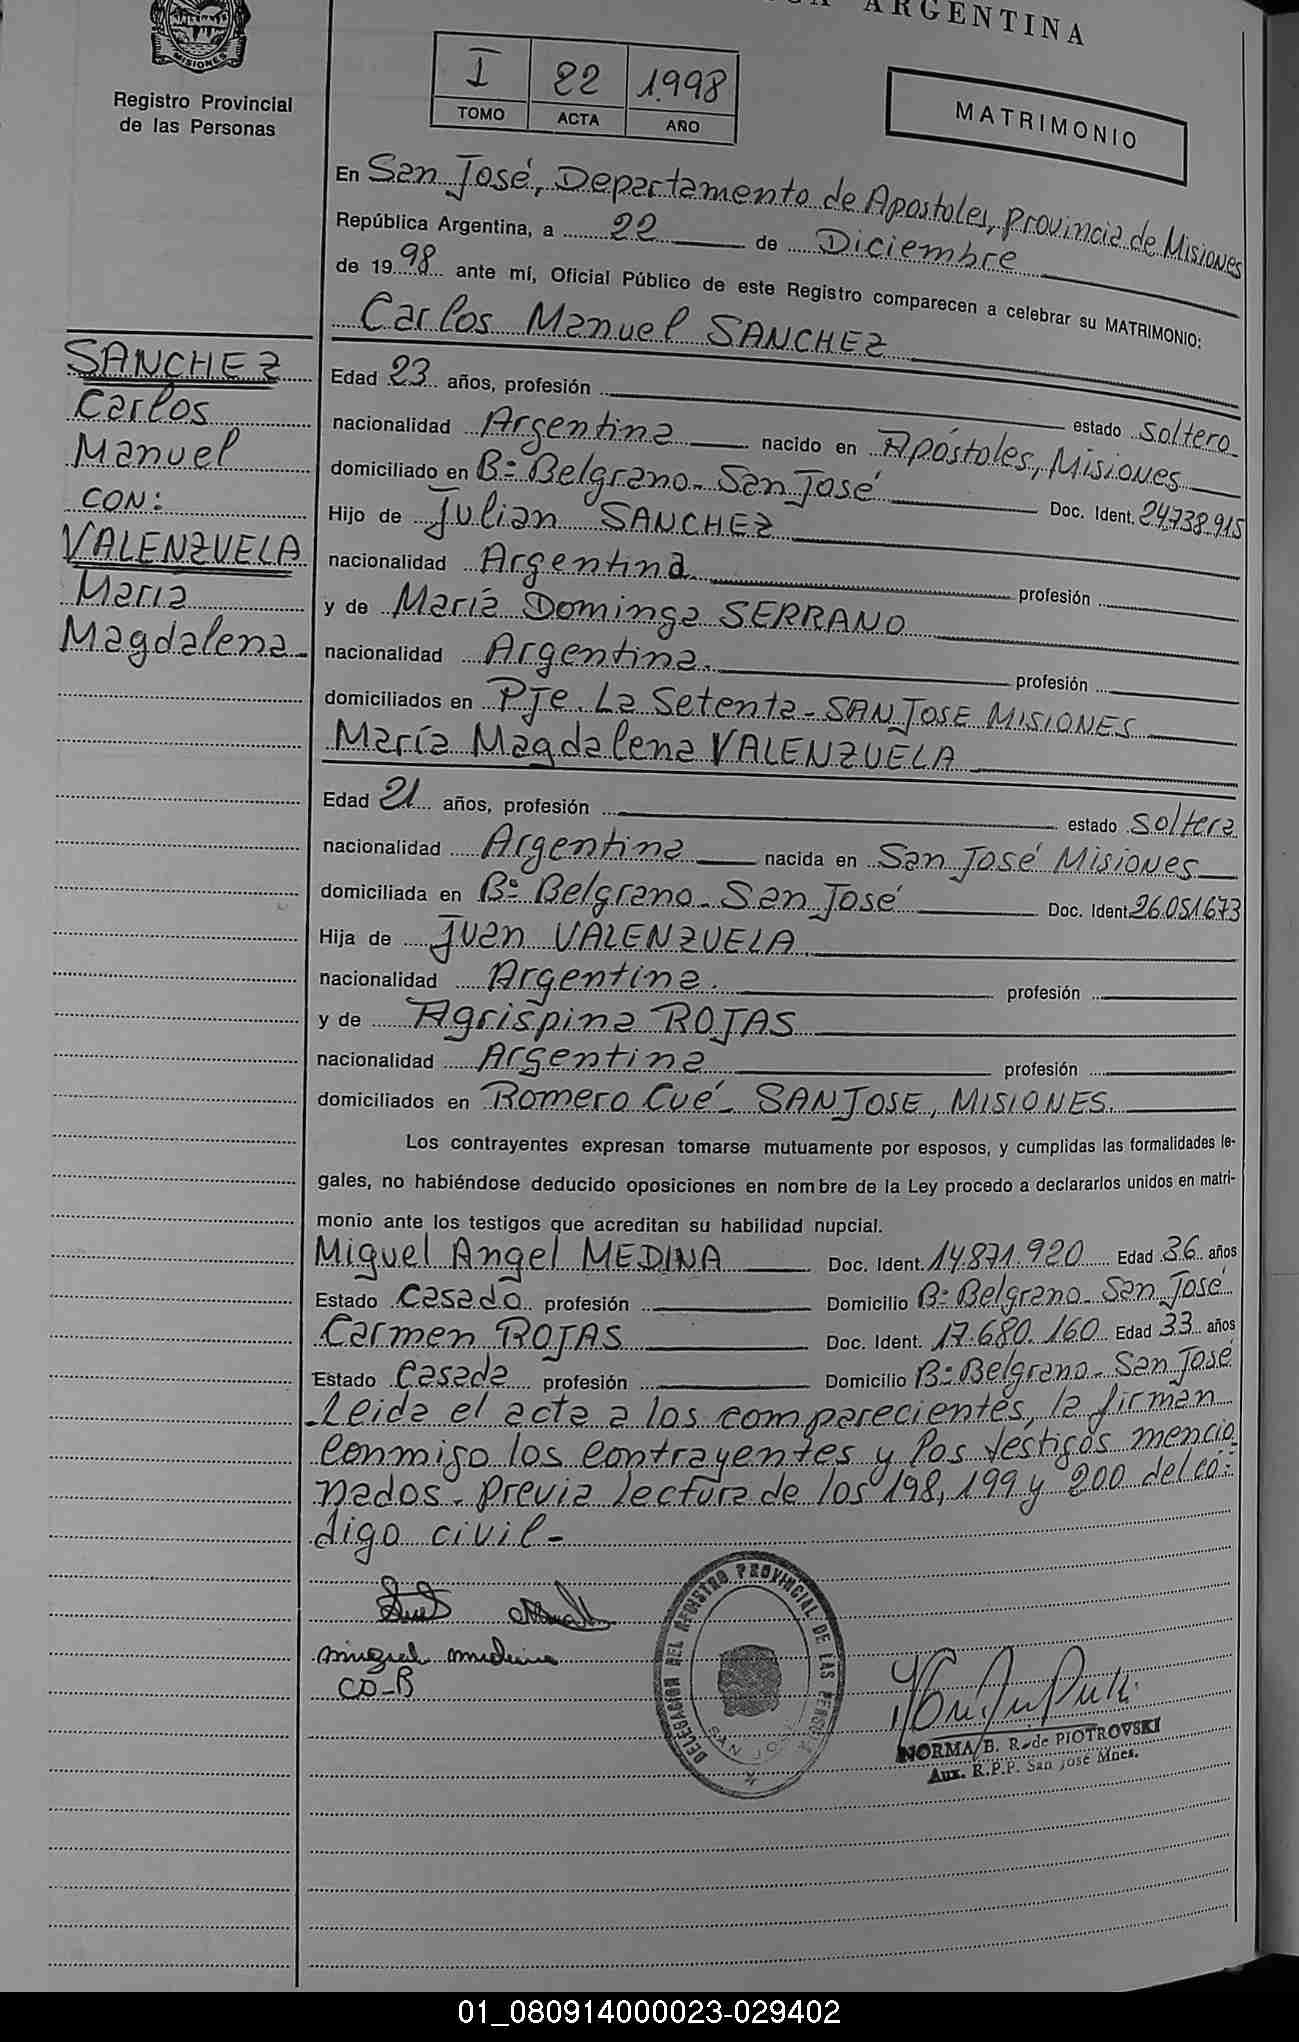 ARGENTINA
MISIONES
Registro Provincial
de las Personas
I 22 1998
TOMO ACTA AÑO
MATRIMONIO
En San José, Departamento de Apostoles, provincia de Misiones
República Argentina, a 22 de Diciembre
de 1998 ante mí, Oficial Público de este Registro comparecen a celebrar su MATRIMONIO:
Carlos Manuel SANCHEZ
SANCHEZ
Carlos
Manuel
CON:
VALENZUELA
Maria
Magdalena
Edad 23 años, profesión estado soltero
nacionalidad Argentina nacido en Apóstoles, Misiones
domiciliado en Bº Belgrano - San José Doc. Ident. 24.738.915
Hijo de Julian SANCHEZ
nacionalidad Argentina profesión
y de María Dominga SERRANO
nacionalidad Argentina. profesión
domiciliados en Pje. La Setenta - SAN JOSE MISIONES
María Magdalena VALENZUELA
Edad 21 años, profesión estado soltera
nacionalidad Argentina nacida en San José Misiones
domiciliada en Bº Belgrano - San José Doc. Ident. 26.051.673
Hija de Juan VALENZUELA
nacionalidad Argentina. profesión
y de Agrispina ROJAS
nacionalidad Argentina profesión
domiciliados en Romero Cué - SAN JOSE, MISIONES.
Los contrayentes expresan tomarse mutuamente por esposos, y cumplidas las formalidades le-
gales, no habiéndose deducido oposiciones en nombre de la Ley procedo a declararlos unidos en matri-
monio ante los testigos que acreditan su habilidad nupcial.
Miguel Angel MEDINA Doc. Ident. 14.871.920 Edad 36 años
Estado Casado profesión Domicilio Bº Belgrano - San José
Carmen ROJAS Doc. Ident. 17.680.160 Edad 33 años
Estado Casada profesión Domicilio Bº Belgrano - San José
Leida el acta a los comparecientes, la firman
conmigo los contrayentes y los testigos mencio
nados. previa lectura de los 198, 199 y 200 del có-
digo civil -
miguel medina
CO-B
DELEGACION DEL REGISTRO PROVINCIAL DE LAS PERSONAS
SAN JOSE
NORMA B. R. de PIOTROVSKI
Aux. R.P.P. San José Mnes.
01_080914000023-029402